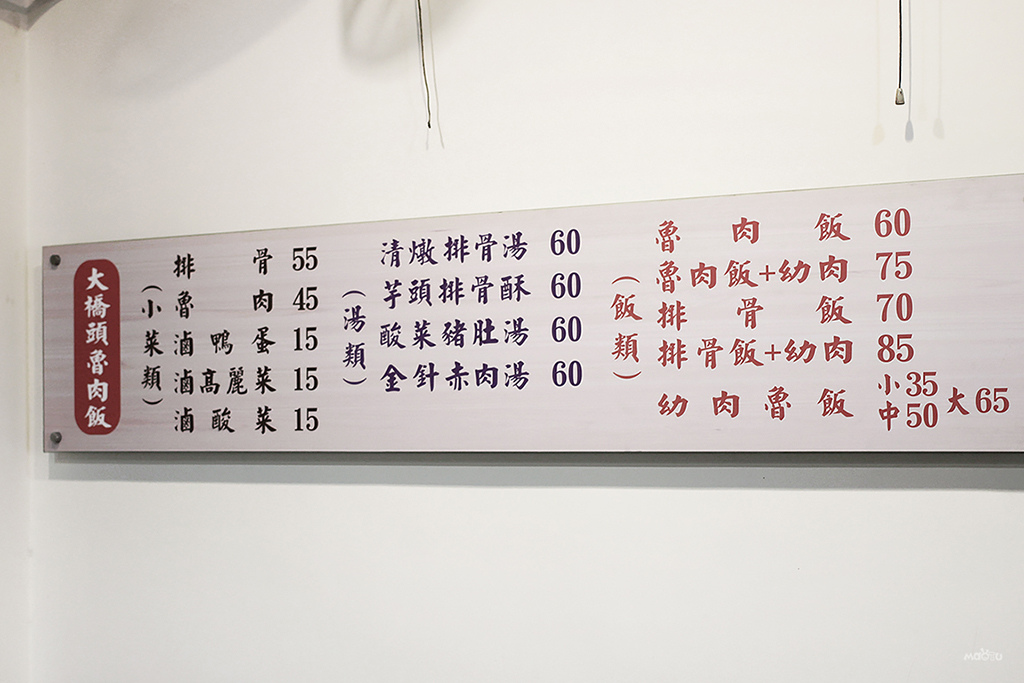 大橋頭魯肉飯
（小菜類）
排骨 55
魯肉 45
滷鴨蛋 15
滷高麗菜 15
滷酸菜 15
（湯類）
清燉排骨湯 60
芋頭排骨酥 60
酸菜豬肚湯 60
金針赤肉湯 60
（飯類）
魯肉飯 60
魯肉飯+幼肉 75
排骨飯 70
排骨飯+幼肉 85
幼肉魯飯 小35 中50 大65